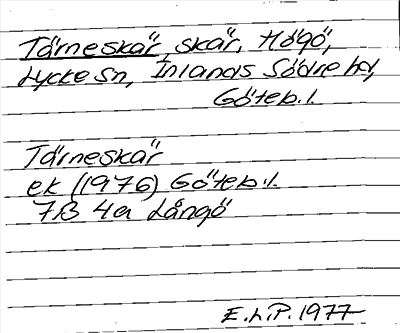 Tärneskär, skär, Högö,
Lycke sn, Inlands Södre hd,
Göteb. l.
Tärneskär
ek (1976) Göteb. l.
7B 4a Långö
E.h.P. 1977